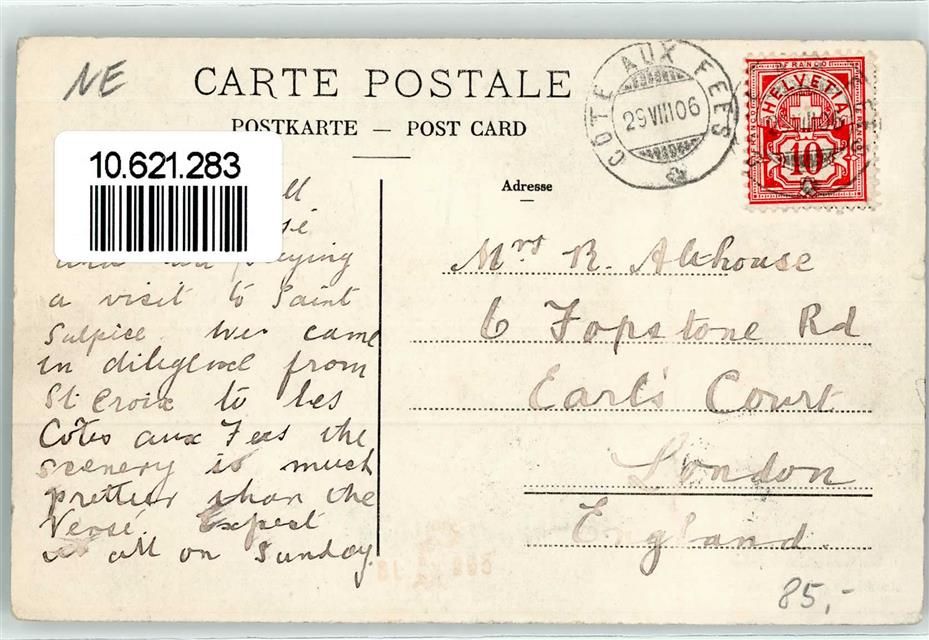 NE
CARTE POSTALE
POSTKARTE — POST CARD
COTE AUX FEES
29 VIII 06
FRANCO
HELVETIA
10
10.621.283
Adresse
Mrs R. Akhouse
6 Fopstone Rd
Earl's Court
London
England
paying
a visit to Saint
Sulpice We came
in diligence from
St Croix to les
Côtes aux Fees the
scenery is much
prettier than the
Verse. Expect
us all on Sunday.
85,-